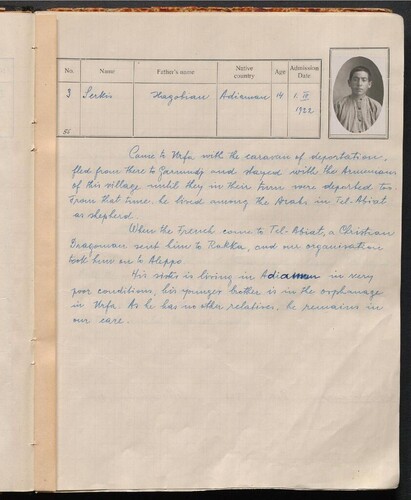 No. Name Father's name Native country Age Admission Date
3 Serkis Hagobian Adiaman 14 1. IV 1922
Came to Urfa with the caravan of deportation,
fled from there to Garmudj and stayed with the Armenians
of this village until they in their turn were deported too.
From that time he lived among the Arabs in Tel-Abiat
as shepherd.
When the French came to Tel-Abiat, a Christian
Dragoman sent him to Rakka, and our organisation
took him over to Aleppo.
His sister is living in Adiaman in very
poor conditions, his younger brother is in the orphanage
in Urfa. As he has no other relatives, he remains in
our care.